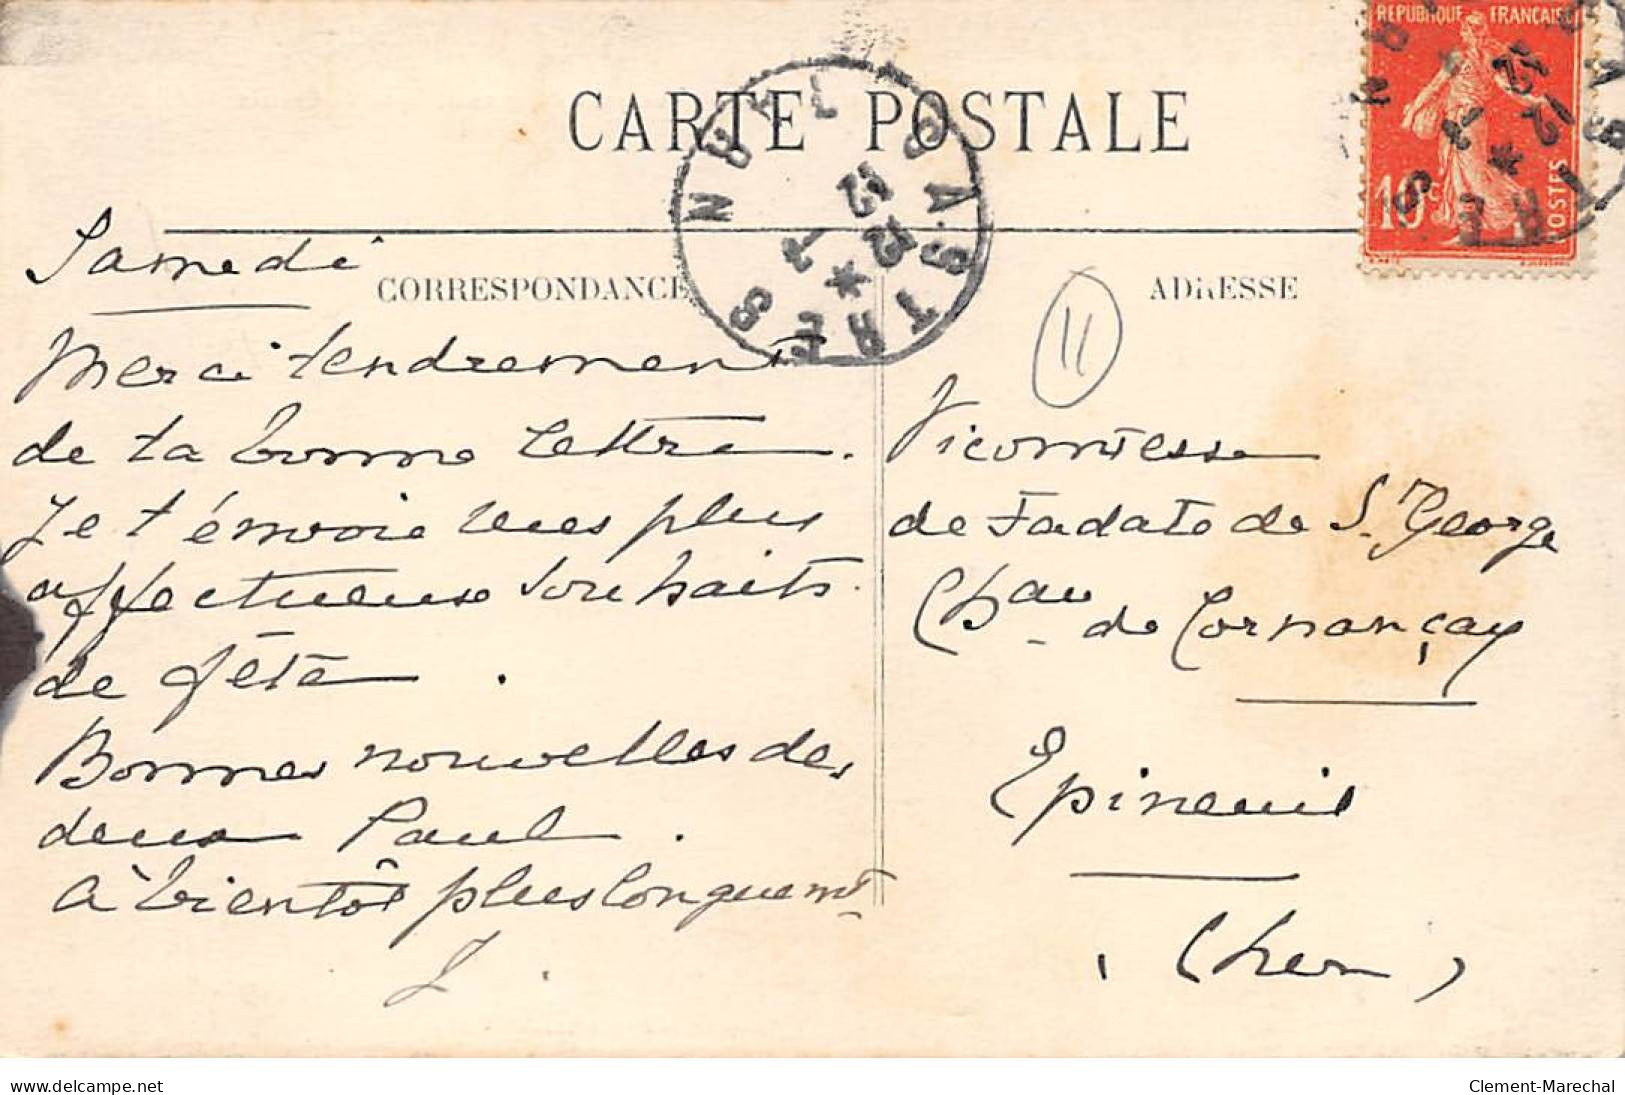 CARTE POSTALE
CORRESPONDANCE
ADRESSE
REPUBLIQUE FRANÇAISE
10c
POSTES
CASTRES
12
11
Samedi
Merci tendrement
de ta bonne lettre.
Je t'envoie mes plus
affectueuse souhaits
de fête.
Bonnes nouvelles des
deux Paul.
à bientôt plus longuemt
J.
Vicomtesse
de Fadate de St George
Chau de Cornançay
Epineuil
(Cher)
delcampe.net
Clement-Marechal